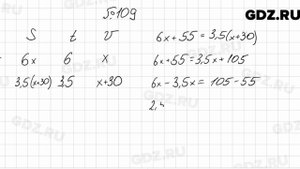 GDZ.RU
№109
S t V
6x 6 x
3,5(x+30) 3,5 x+30
6x + 55 = 3,5(x+30)
6x + 55 = 3,5x + 105
6x - 3,5x = 105 - 55
2,
GDZ.RU